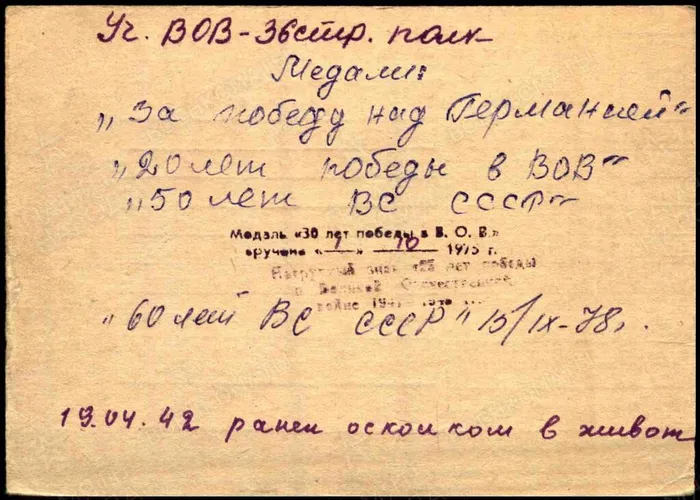 Уч. ВОВ - 36 стр. полк
Медали:
„За победу над Германией"
„20 лет победы в ВОВ"
„50 лет ВС СССР"
Медаль «30 лет победы в В. О. В.»
вручена «1» 10 1975 г.
Нагрудный знак «25 лет победы
в Великой Отечественной
войне 1941
„60 лет ВС СССР" 15/IX-78г.
19.04.42 ранен осколком в живот